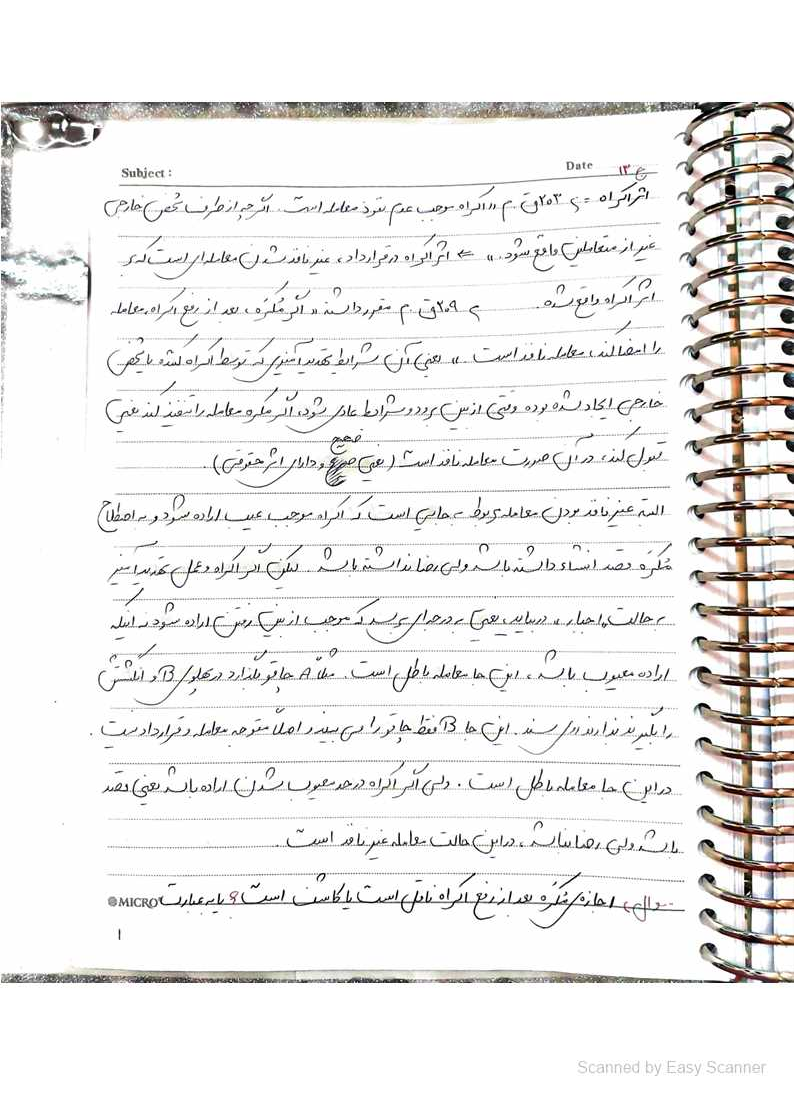 Subject :
Date ج ۱۳
اثر اکراه = م ۲۰۳ ق.م «اکراه موجب عدم نفوذ معامله است. اگرچه از طرف شخص خارجی
غیر از متعاملین واقع شود.» ← اثر اکراه در قرارداد، غیر نافذ شدن معامله‌ای است که بر
اثر اکراه واقع شده. م ۲۰۹ ق.م مقرر داشته «اگر مُکرَه، بعد از رفع اکراه، معامله
را امضا کند، معامله نافذ است.» یعنی آن شرایط تهدیدآمیزی که توسط اکراه کننده یا شخص
خارجی ایجاد شده بوده وقتی از بین برود و شرایط عادی شود، اگر مکره معامله را تنفیذ کند یعنی
قبول کند، در آن صورت معامله نافذ است (یعنی صحیح و دارای اثر حقوقی).
البته غیر نافذ بودن معامله مربوط به جایی است که اکراه موجب عیب اراده شود و به اصطلاح
مُکرَه قصد انشاء داشته باشد ولی رضا نداشته باشد. لیکن اگر اکراه و عمل تهدیدآمیز
به حالت «اجبار» دربیاید، یعنی به درجه‌ای برسد که موجب از بین رفتن اراده شود نه اینکه
اراده معیوب باشد، این جا معامله باطل است. مثلاً A چاقو بگذارد در پهلوی B و انگشتش
را بگیرند بذارند روی سند. این جا B فقط چاقو را می بیند و اصلاً متوجه معامله و قرارداد نیست.
در این جا معامله باطل است. ولی اگر اکراه در حد معیوب شدن اراده باشد یعنی قصد
باشد ولی رضا نباشد، در این حالت معامله غیر نافذ است.
سوال) اجازه‌ی مُکرَه بعد از رفع اکراه ناقل است یا کاشف است؟ یا به عبارت
MICRO
۱
Scanned by Easy Scanner